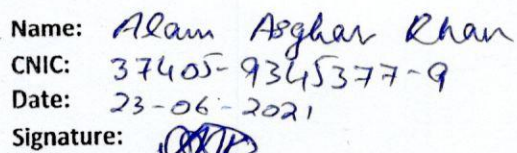 Name: Alam Asghar Khan
CNIC: 37405-9345377-9
Date: 23-06-2021
Signature: